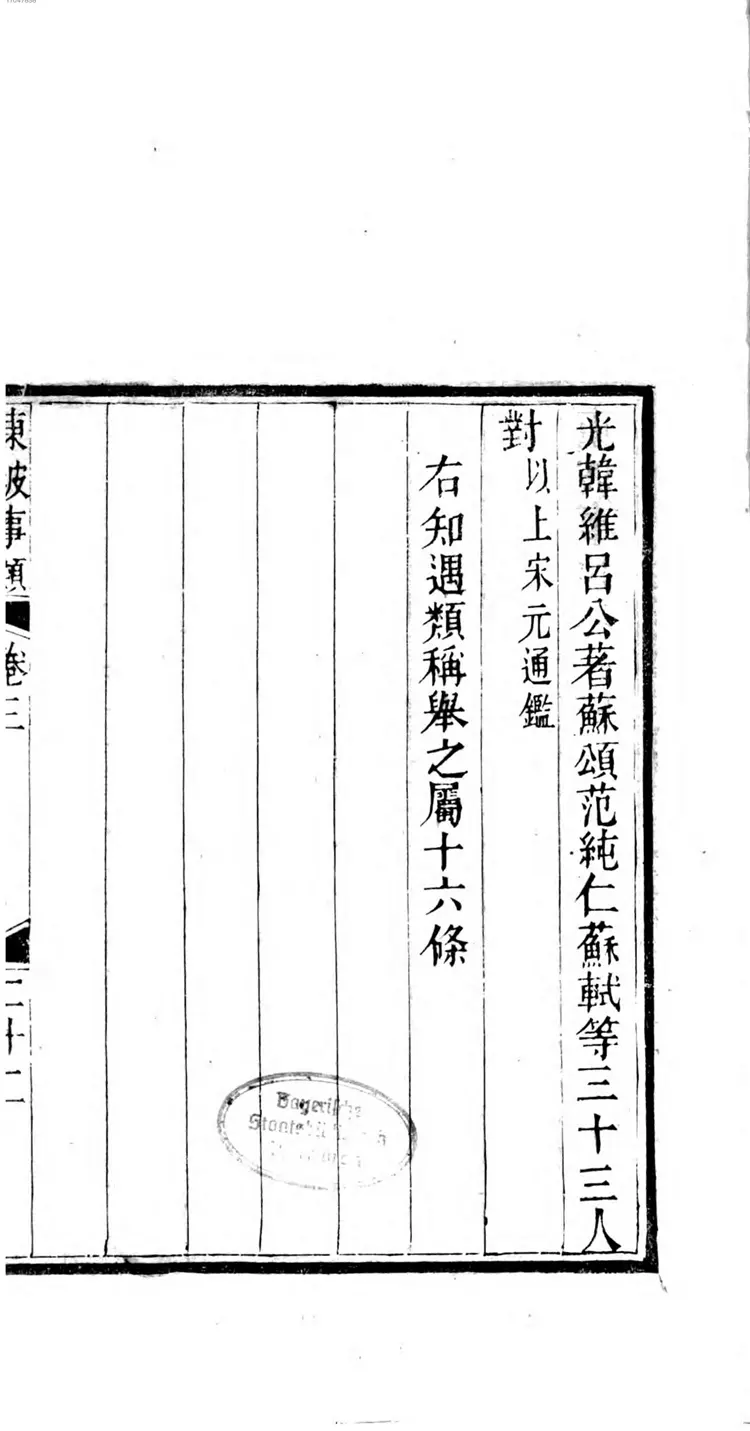 光韓維呂公著蘇頌范純仁蘇軾等三十三人
對以上宋元通鑑
右知遇類稱舉之屬十六條
東坡事類
卷三
二十二
Bayerische